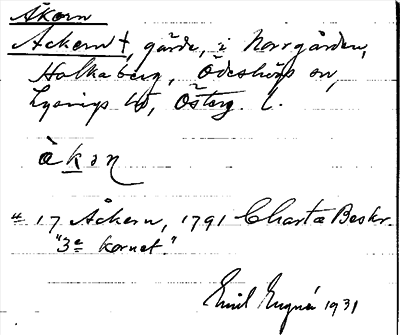 Åkern
Åckern †, gärde, i Norrgården,
Holkaberg, Ödeshögs sn,
Lysings hd, Österg. l.
åkəɳ
" 17 Åkern, 1791 Charta Beskr.
"3e kornet."
Emil 1931